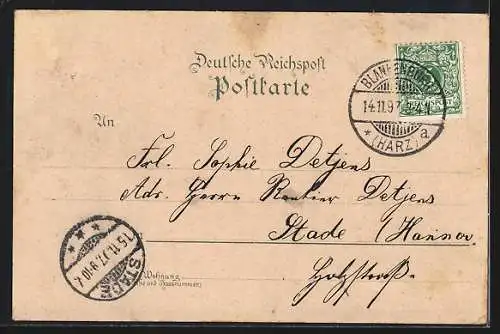 Deutsche Reichspost
Postkarte
BLANKENBURG
14.11.97
* (HARZ) a
An
Frl. Sophie Detjens
Adr. Herrn Rentier Detjens
Stade (Hannov.
Holzstraße.
Wohnung
(Straße und Hausnummer)
STADE
15.11.97. 9-10.V.